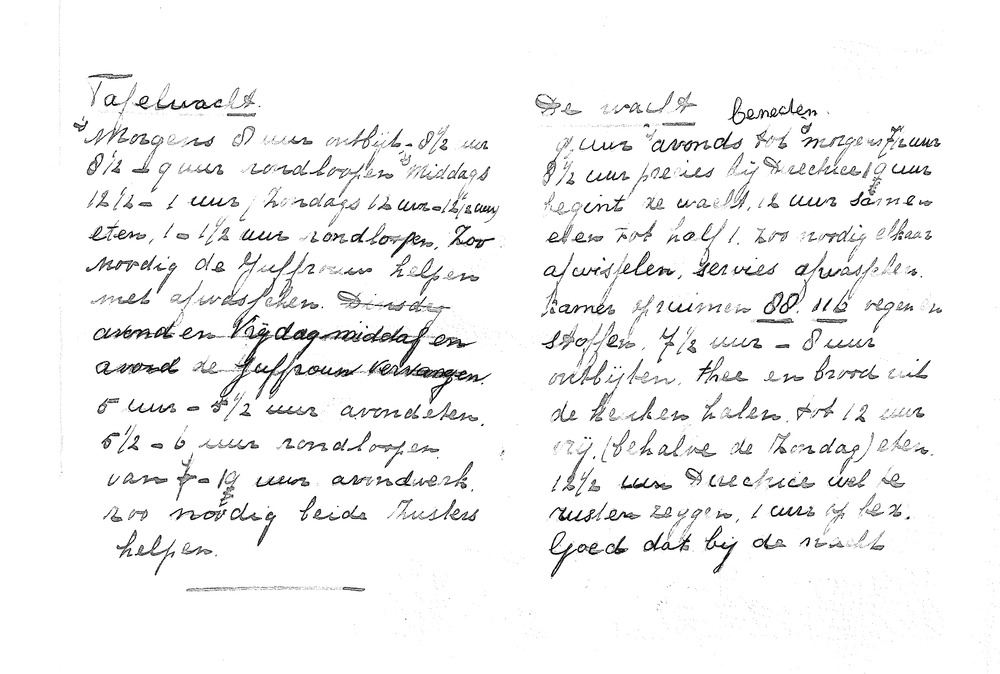 Tafelwacht.
's Morgens 8 uur ontbijt - 8 1/2 uur
8 1/2 - 9 uur rondloopen 's Middags
12 1/2 - 1 uur (Zondags 12 uur - 12 1/2 uur)
eten, 1 - 1 1/2 uur rondloopen. Zoo
noodig de Juffrouw helpen
met afwasschen. Dinsdag
avond en Vrijdagmiddag en
avond de Juffrouw vervangen.
5 uur - 5 1/2 uur avondeten.
5 1/2 - 6 uur rondloopen.
van 7 - 9 uur avondwerk.
zoo noodig beide Zusters
helpen.
De wacht beneden.
9 uur 's avonds tot 's morgens 7 1/2 uur
8 1/2 uur precies bij 9 uur
begint de wacht. 12 uur samen
eten tot half 1. Zoo noodig elkaar
afwisselen, servies afwasschen.
kamer opruimen 88. 116 vegen en
stoffen. 7 1/2 uur - 8 uur
ontbijten. thee en brood uit
de keuken halen. tot 12 uur
vrij. (behalve de Zondag) eten.
12 1/2 uur wel te
rusten zeggen, 1 uur op bed.
Goed dat bij de nacht